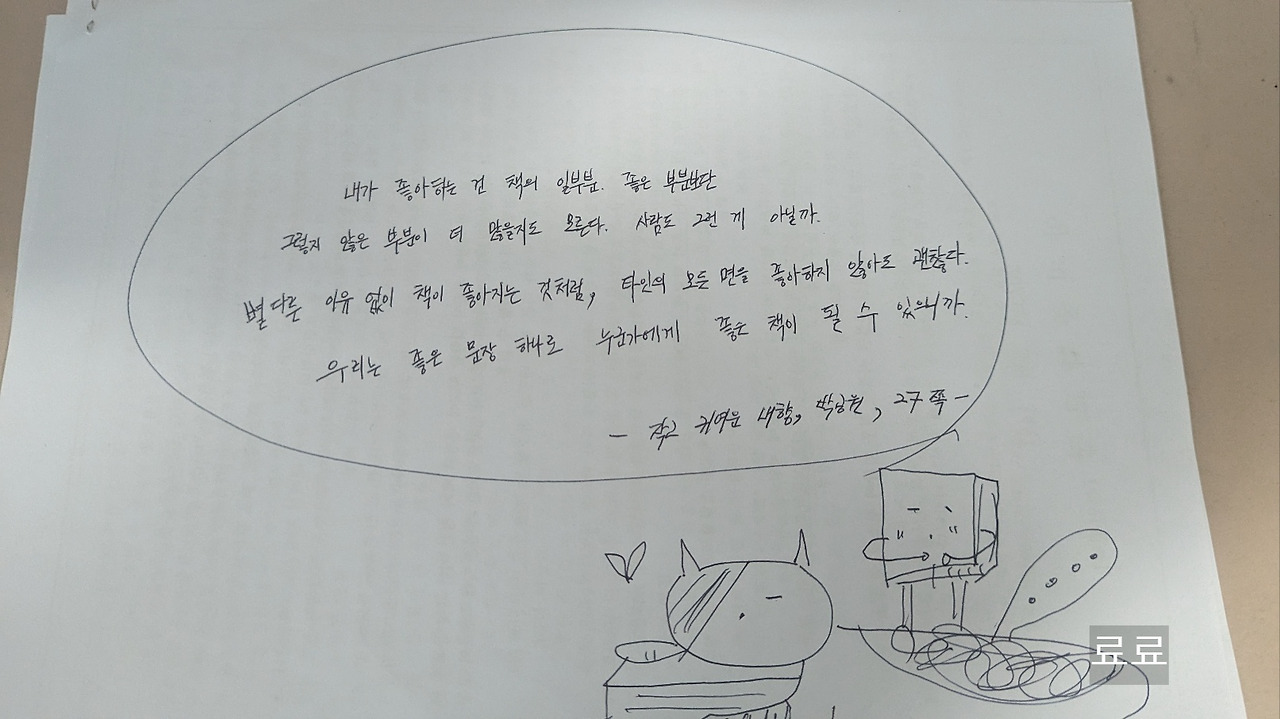 내가 좋아하는 건 책의 일부분. 좋은 부분보단
그렇지 않은 부분이 더 많을지도 모른다. 사람도 그런 게 아닐까.
별다른 이유 없이 책이 좋아지는 것처럼, 타인의 모든 면을 좋아하지 않아도 괜찮다.
우리는 좋은 문장 하나로 누군가에게 좋은 책이 될 수 있으니까.
- 작고 귀여운 내향, 27쪽 -
료료